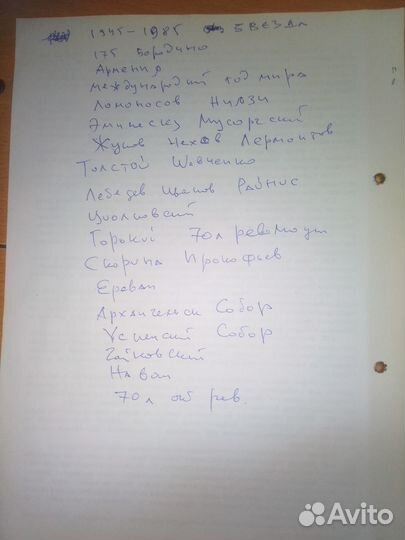 1945-1985 ЗВЕЗДА
175 Бородино
Армения
Международный год мира
Ломоносов Низами
Эминеску Мусоргский
Жуков Чехов Лермонтов
Толстой Шевченко
Лебедев Иванов Райнис
Циолковский
Горький 70 л революции
Скорина Прокофьев
Ереван
Архангельск Собор
Успенский Собор
Чайковский
Навои
70 л окт рев.
Avito